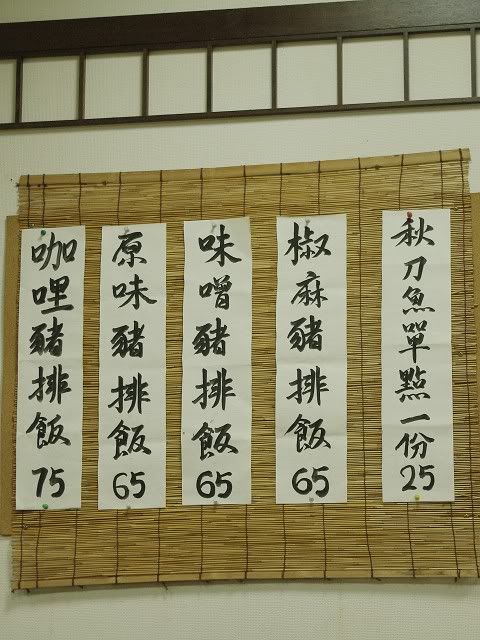 秋刀魚單點一份25
椒麻豬排飯65
味噌豬排飯65
原味豬排飯65
咖哩豬排飯75